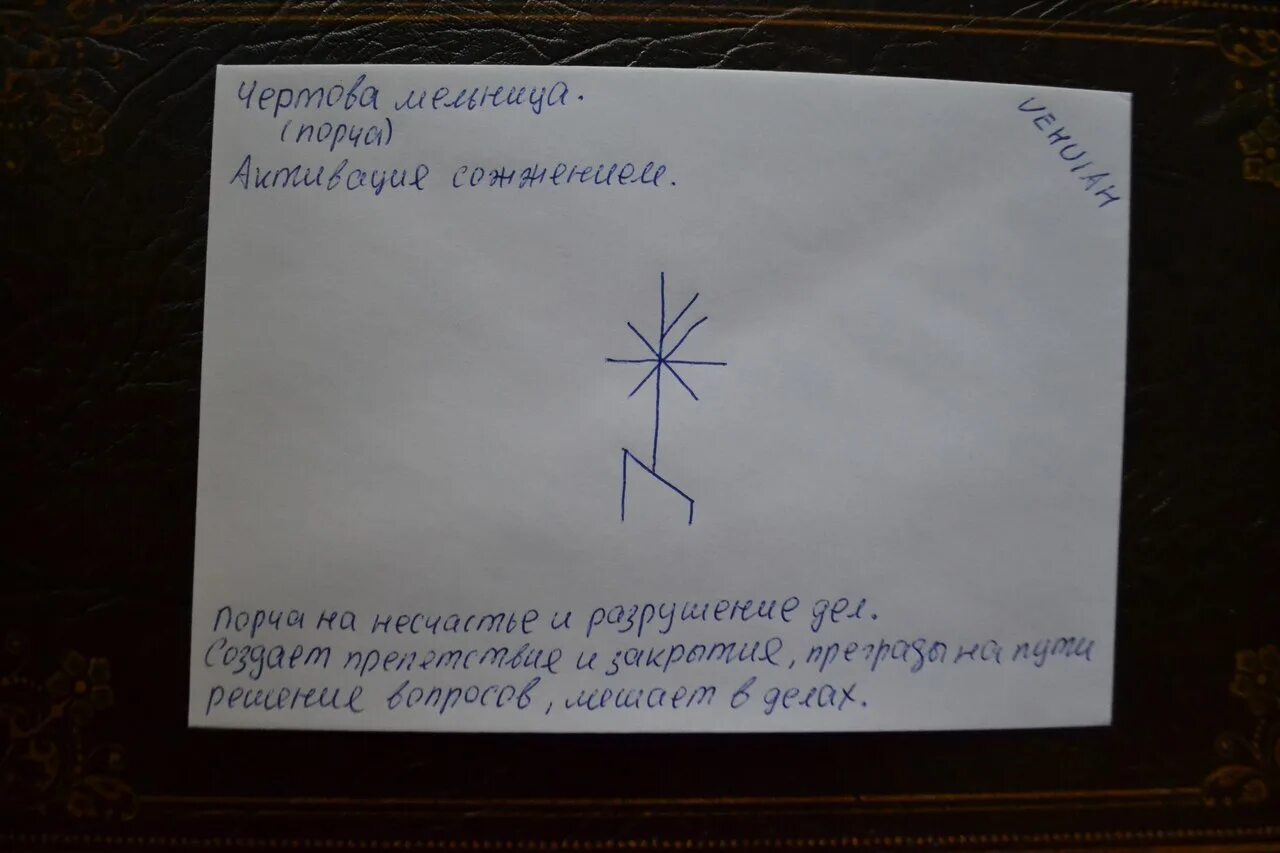 Чертова мельница.
(порча)
Активация сожжением.
VEHUIAH
Порча на несчастье и разрушение дел.
Создает препятствия и закрытия, преграды на пути
решения вопросов, мешает в делах.